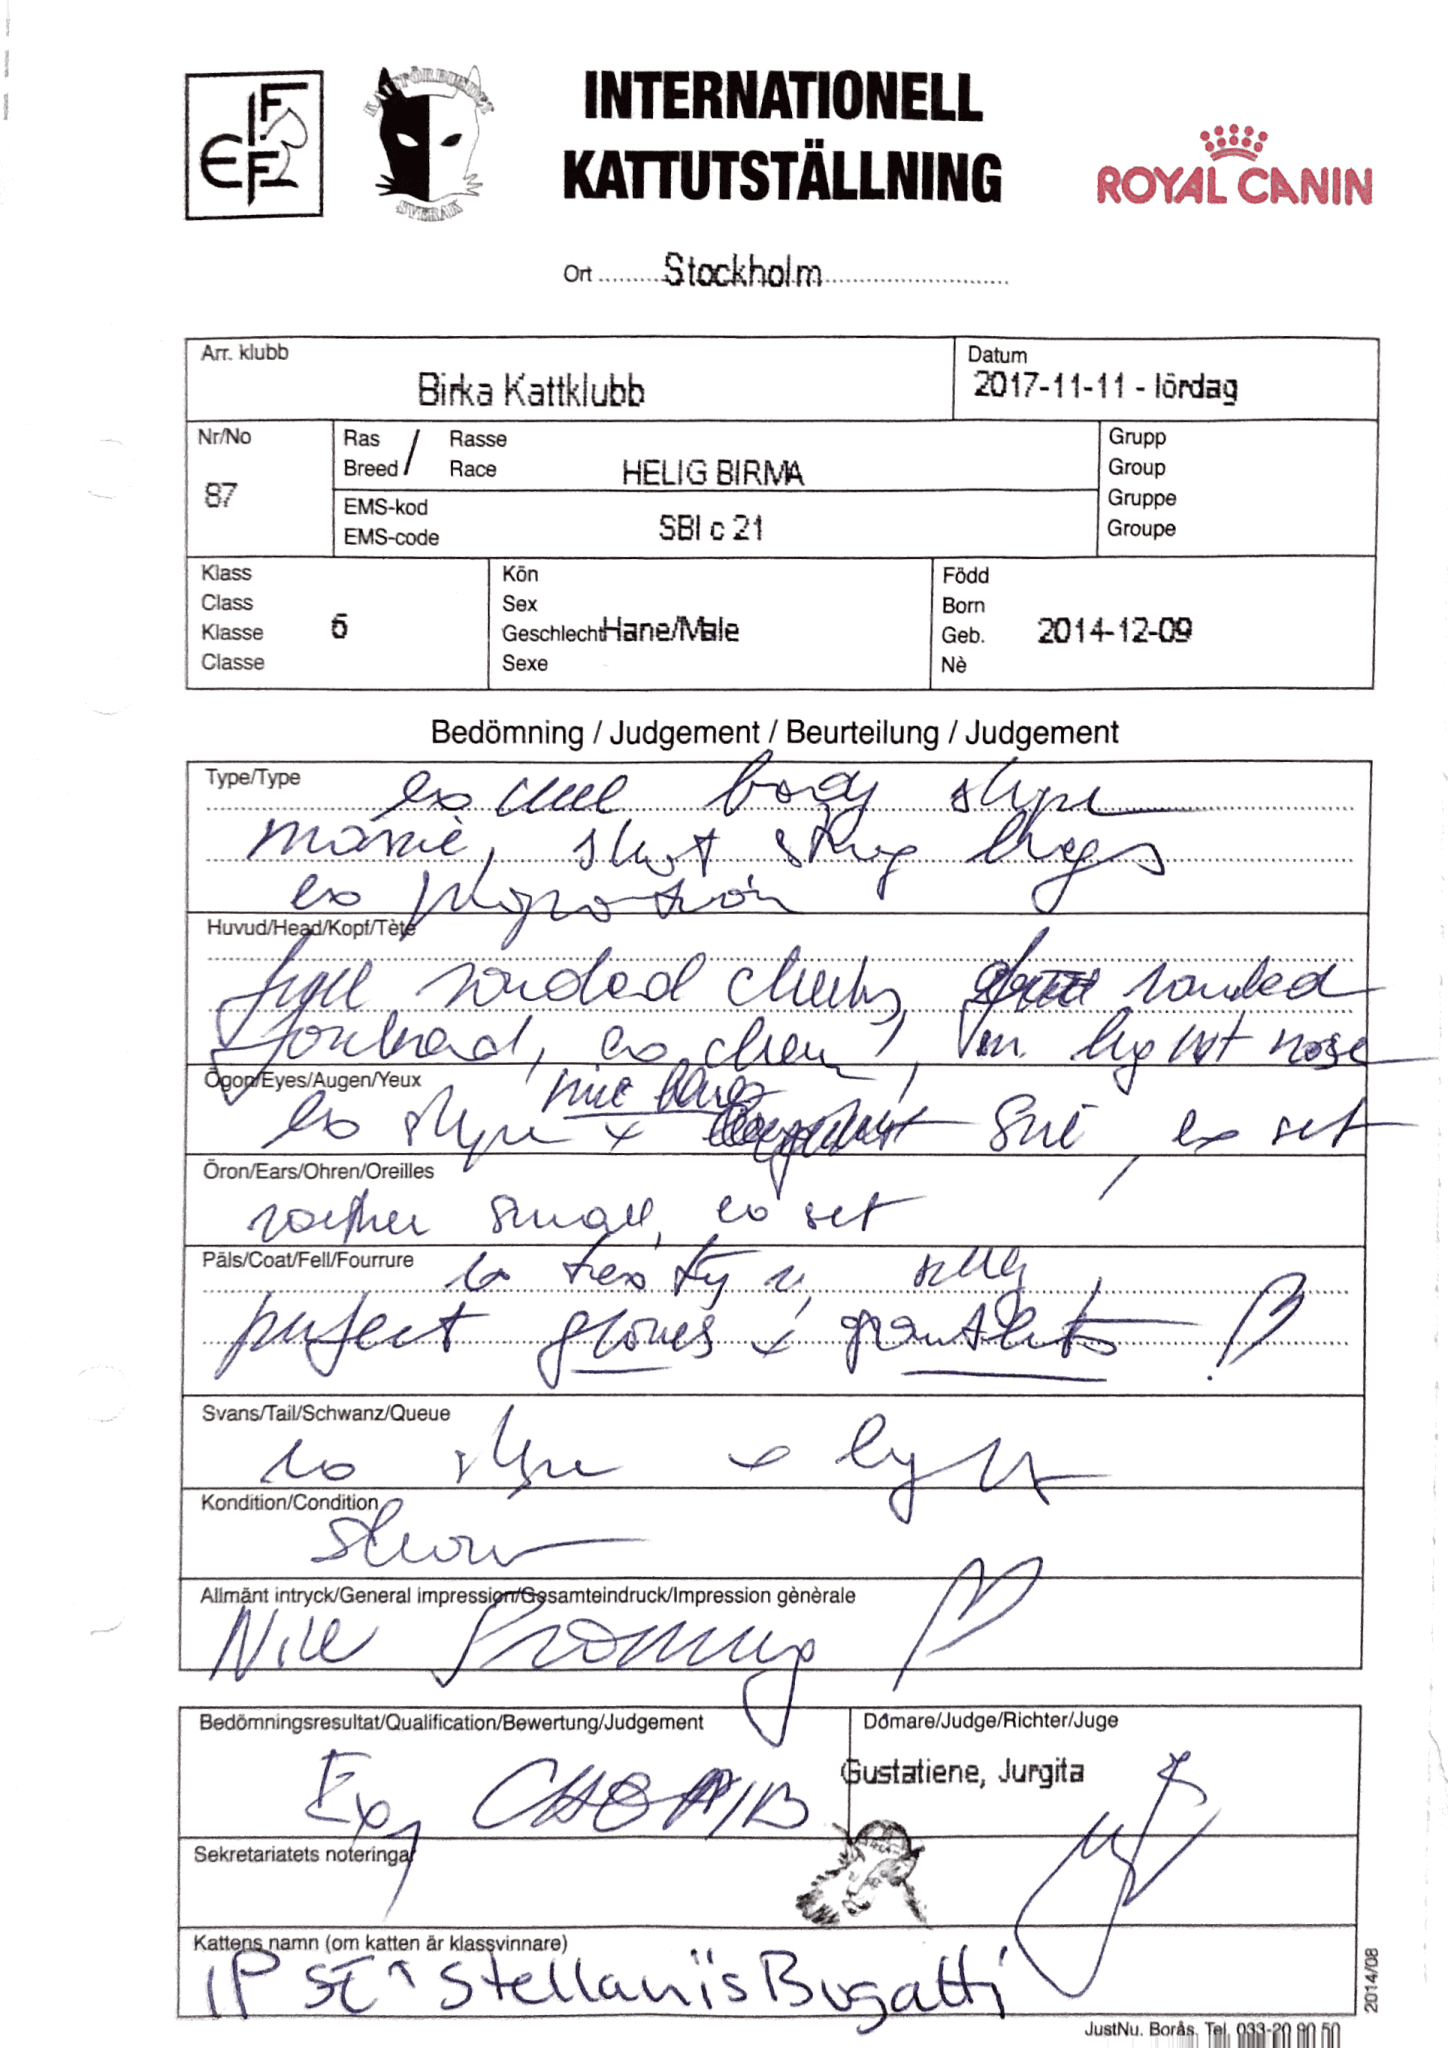 FIFE
KATTFÖRBUNDET
SVERAK
INTERNATIONELL
KATTUTSTÄLLNING
ROYAL CANIN
Ort Stockholm
Arr. klubb
Birka Kattklubb
Datum
2017-11-11 - lördag
Nr/No
87
Ras / Rasse
Breed / Race
HELIG BIRMA
EMS-kod
EMS-code
SBI c 21
Grupp
Group
Gruppe
Groupe
Klass
Class
Klasse
Classe
Kön
Sex
Geschlecht Hane/Male
Sexe
Född
Born
Geb. 2014-12-09
Nè
Bedömning / Judgement / Beurteilung / Judgement
Type/Type
body shape
short strong legs
ex proportion
Huvud/Head/Kopf/Tète
full rounded cheeks, rounded
forehead, ex chin, nose
Ögon/Eyes/Augen/Yeux
nice
ex shape + ex set
Öron/Ears/Ohren/Oreilles
rather small, ex set
Päls/Coat/Fell/Fourrure
ex silky
perfect gloves + gauntlets
Svans/Tail/Schwanz/Queue
ex shape +
Kondition/Condition
Show
Allmänt intryck/General impression/Gesamteindruck/Impression gènèrale
Nice
Bedömningsresultat/Qualification/Bewertung/Judgement
Ex 1
Domare/Judge/Richter/Juge
Gustatiene, Jurgita
Sekretariatets noteringar
Kattens namn (om katten är klassvinnare)
IP SE* Stellaniis Bugatti
2014/08
JustNu. Borås. Tel. 033-20 90 50